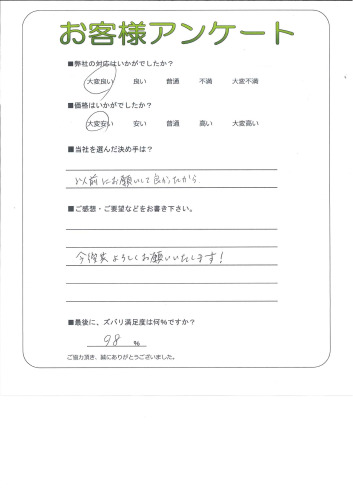 お客様アンケート
■弊社の対応はいかがでしたか？
大変良い 良い 普通 不満 大変不満
■価格はいかがでしたか？
大変安い 安い 普通 高い 大変高い
■当社を選んだ決め手は？
以前にお願いして良かったから
■ご感想・ご要望などをお書き下さい。
今後共よろしくお願いいたします！
■最後に、ズバリ満足度は何％ですか？
98 %
ご協力頂き、誠にありがとうございました。